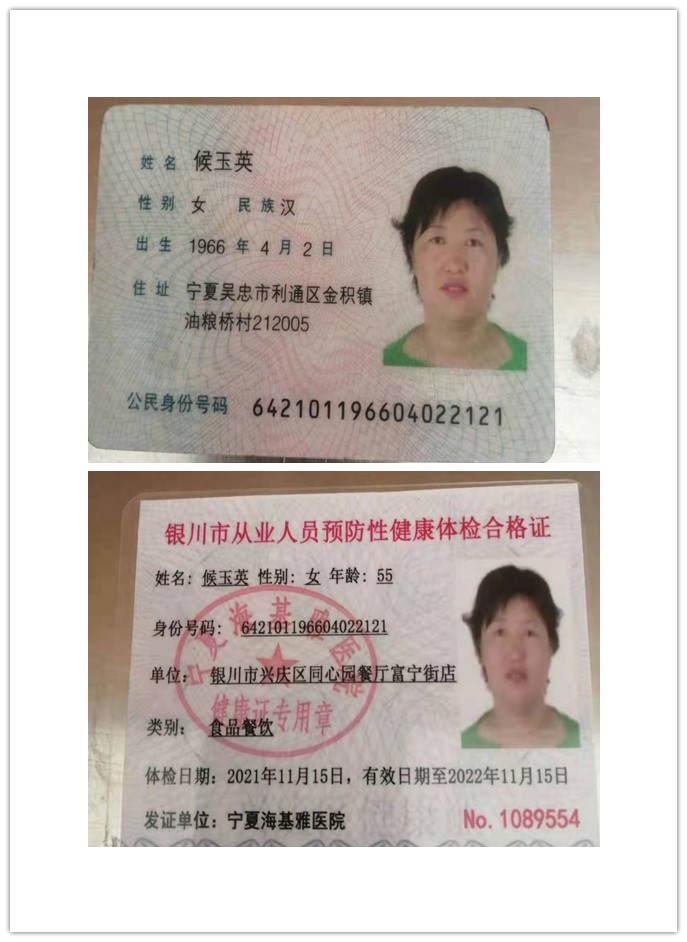 姓名 候玉英
性别 女 民族 汉
出生 1966 年 4 月 2 日
住址 宁夏吴忠市利通区金积镇
油粮桥村212005
公民身份号码 642101196604022121
银川市从业人员预防性健康体检合格证
姓名: 候玉英 性别: 女 年龄: 55
身份号码: 642101196604022121
单位: 银川市兴庆区同心园餐厅富宁街店
类别: 食品餐饮
宁夏海基雅医院
健康证专用章
体检日期: 2021年11月15日, 有效日期至2022年11月15日
发证单位: 宁夏海基雅医院 No. 1089554